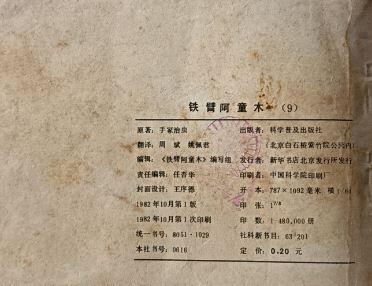 铁臂阿童木（9）
原著：手冢治虫
翻译：周斌 姚佩君
编辑：《铁臂阿童木》编写组
责任编辑：任杏华
封面设计：王序德
1982年10月第1版
1982年10月第1次印刷
统一书号：8051·1029
本社书号：0616
出版者：科学普及出版社
（北京白石桥紫竹院公园内）
发行者：新华书店北京发行所发行
印刷者：中国科学院印刷厂
开本：787×1092毫米 1/64
印张：1 7/8
印数：1—480,000册
社科新书目：63—201
定价：0.20元